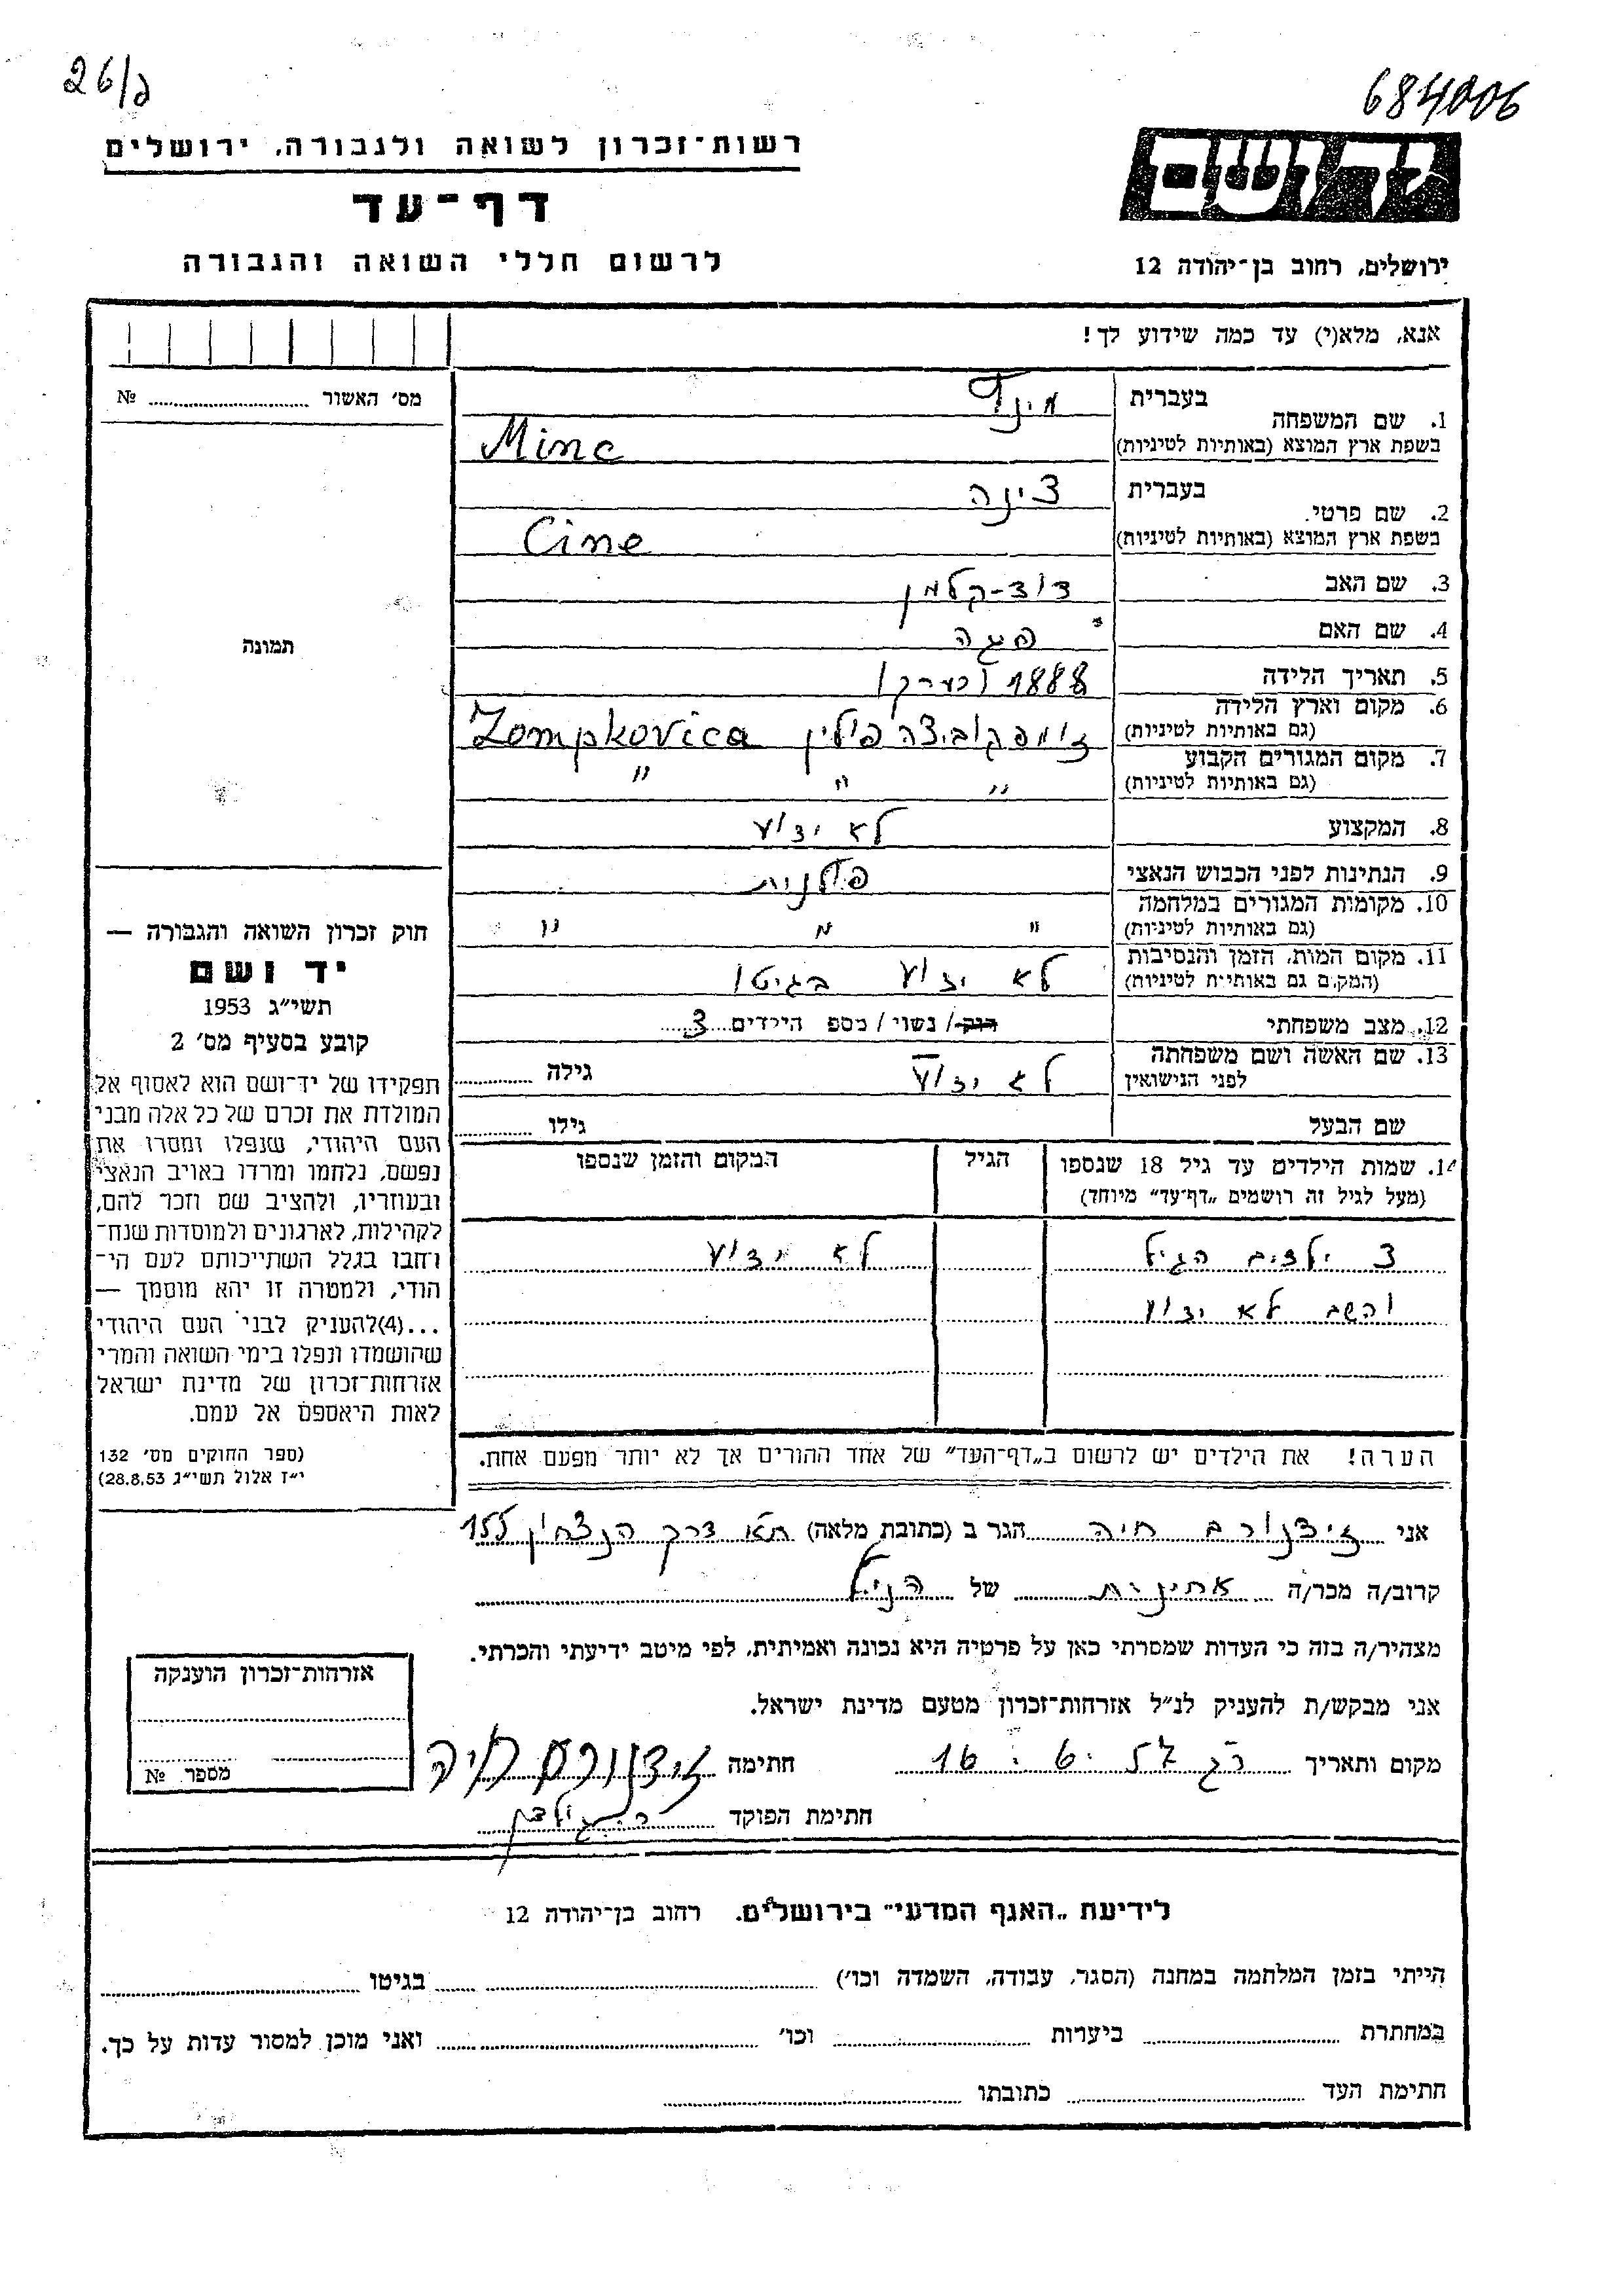 26/ג
684006
רשות־זכרון לשואה ולגבורה, ירושלים
דף־עד
לרשום חללי השואה והגבורה
יד ושם
ירושלים, רחוב בן־יהודה 12
אנא, מלא(י) עד כמה שידוע לך!
מס׳ האשור № 
תמונה
חוק זכרון השואה והגבורה —
יד ושם
תשי״ג 1953
קובע בסעיף מס׳ 2
תפקידו של יד־ושם הוא לאסוף אל
המולדת את זכרם של כל אלה מבני
העם היהודי, שנפלו ומסרו את
נפשם, נלחמו ומרדו באויב הנאצי
ובעוזריו, ולהציב שם וזכר להם,
לקהילות, לארגונים ולמוסדות שנח־
רובו בגלל השתייכותם לעם הי־
הודי, ולמטרה זו יהא מוסמך —
...(4) להעניק לבני העם היהודי
שהושמדו ונפלו בימי השואה והמרי
אזרחות־זכרון של מדינת ישראל
לאות היאספם אל עמם.
(ספר החוקים מס׳ 132
י״ז אלול תשי״ג 28.8.53)
1. שם המשפחה בעברית מינץ
בשפת ארץ המוצא (באותיות לטיניות) Minc
2. שם פרטי. בעברית צינה
בשפת ארץ המוצא (באותיות לטיניות) Cine
3. שם האב דוד-קלמן
4. שם האם פגה
5. תאריך הלידה 1888 (בערך)
6. מקום וארץ הלידה (גם באותיות לטיניות) זומפקוביצה פולין Zompkovica
7. מקום המגורים הקבוע (גם באותיות לטיניות) " " "
8. המקצוע לא ידוע
9. הנתינות לפני הכבוש הנאצי פולנית
10. מקומות המגורים במלחמה (גם באותיות לטיניות) " " "
11. מקום המות, הזמן והנסיבות (המקום גם באותיות לטיניות) לא ידוע בגיטו
12. מצב משפחתי רווק / נשוי / מספ הילדים 3
13. שם האשה ושם משפחתה לפני הנישואין לא ידוע גילה
שם הבעל גילו
14. שמות הילדים עד גיל 18 שנספו (מעל לגיל זה רושמים „דף־עד״ מיוחד) הגיל המקום והזמן שנספו
3 ילדים הגיל לא ידוע
והשם לא ידוע
הערה! את הילדים יש לרשום ב„דף־העד״ של אחד ההורים אך לא יותר מפעם אחת.
אני זידנורב חיה הגר ב (כתובת מלאה) ת״א דרך הנצחון 155
קרוב/ה מכר/ה אחינית של הנ״ל
מצהיר/ה בזה כי העדות שמסרתי כאן על פרטיה היא נכונה ואמיתית, לפי מיטב ידיעתי והכרתי.
אני מבקש/ת להעניק לנ״ל אזרחות־זכרון מטעם מדינת ישראל.
מקום ותאריך רג 57 . 6 . 16 חתימה זידנורב חיה
חתימת הפוקד
אזרחות־זכרון הוענקה
מספר №
לידיעת „האגף המדעי״ בירושלים. רחוב בן־יהודה 12
הייתי בזמן המלחמה במחנה (הסגר, עבודה, השמדה וכו׳) בגיטו
במחתרת ביערות וכו׳ ואני מוכן למסור עדות על כך.
חתימת העד כתובתו